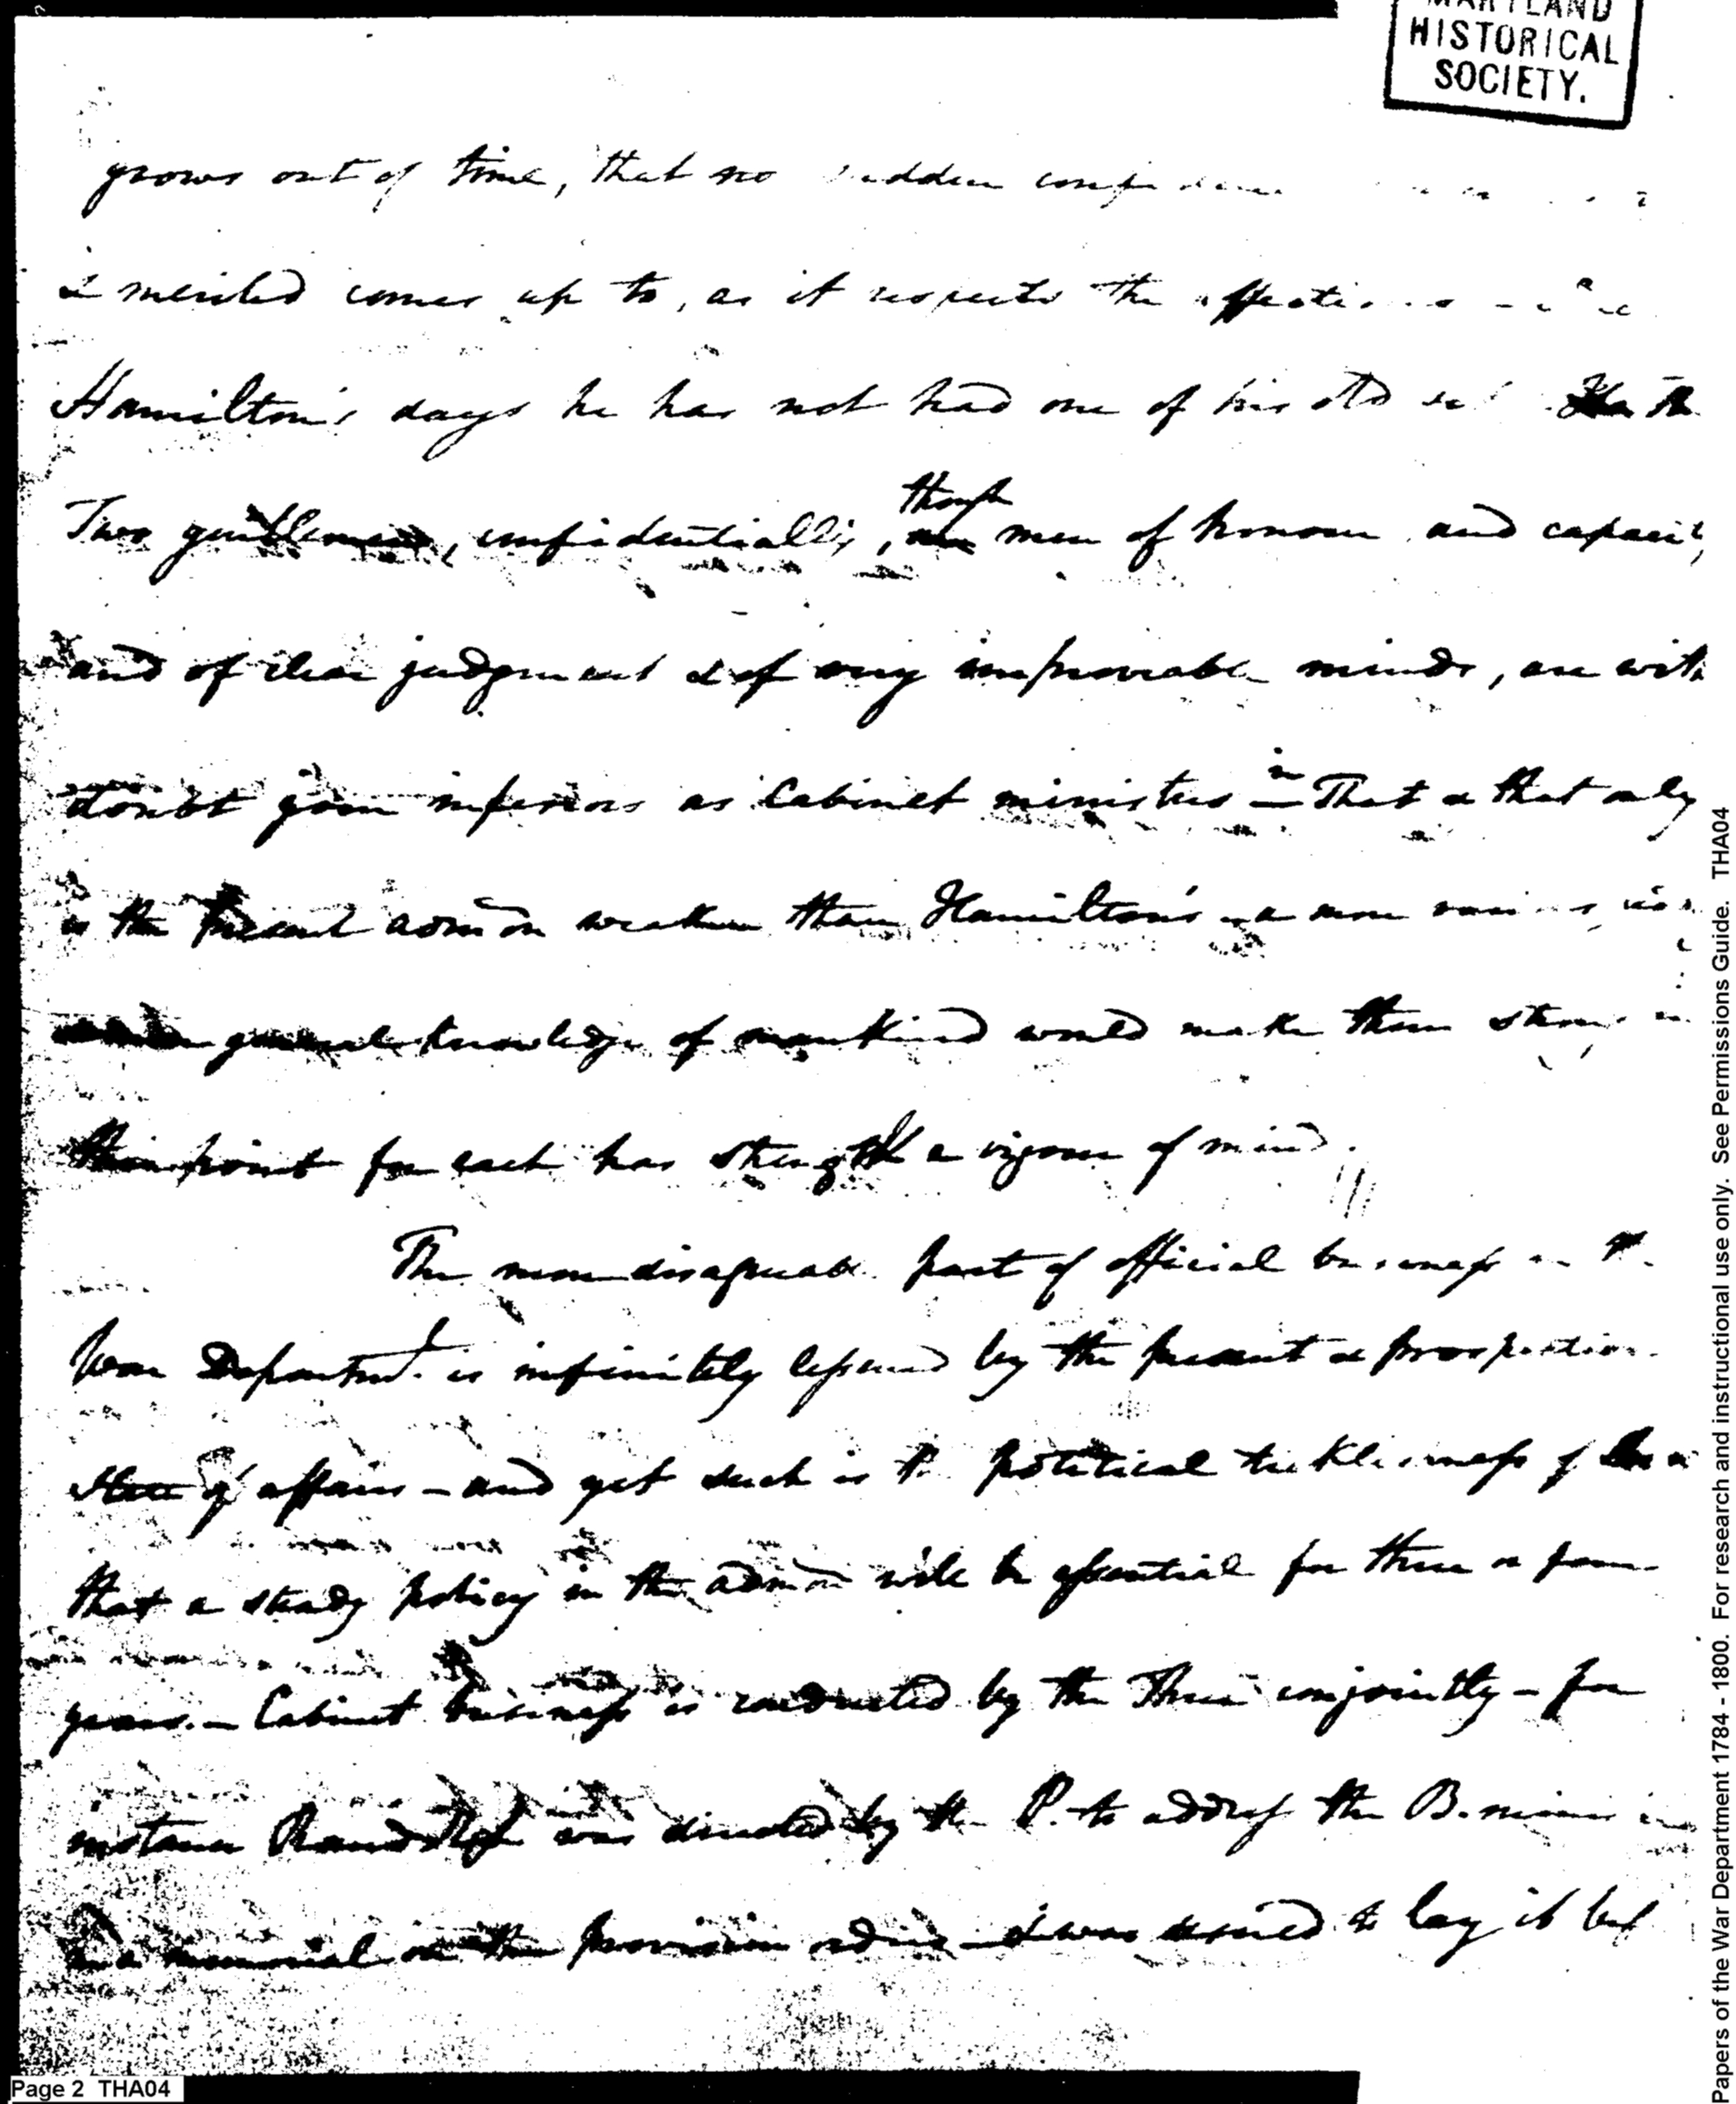 MARYLAND
HISTORICAL
SOCIETY.
grows out of time, that no sudden confidence
is merited comes up to, as it respects the affections
Hamilton's days he has not had one of his old
though
Two gentlemen, confidentially, men of honour and capacity
and of clear judgment & of very improveable minds, are with
in
doubt your inferiors as Cabinet ministers — That & that only
is the present admon weaker than Hamilton's - a more various
general knowledge of mankind would make them strong in
point for each has strength & vigour of mind.
The more disagreeable part of official business in the
War Departmt. is infinitely lessened by the present & prospective
state of affairs - and yet such is the political ticklishness of
that a steady policy in the admon will be essential for three or four
years. - Cabinet business is conducted by the Three conjointly - for
instance Randolph was directed by the P. to address the B. minister
a memorial on the provision - I was desired to lay it bef
Page 2 THA04
Papers of the War Department 1784 - 1800. For research and instructional use only. See Permissions Guide. THA04